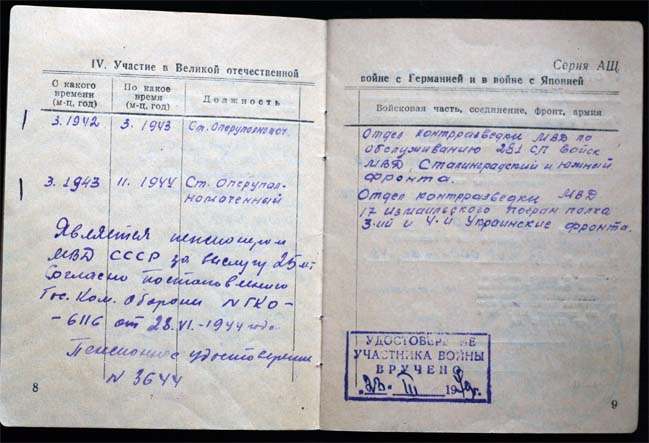 IV. Участие в Великой отечественной
С какого времени (м-ц, год)
По какое время (м-ц, год)
Должность
3.1942 3.1943 Ст. Оперуполномоч.
3.1943 11.1944 Ст. Оперупол-
номоченный
Является пенсионером
МВД СССР за выслугу 25 лет
согласно постановлению
Гос. Ком. Обороны N ГКО-
-6116 от 28.VI.-1944 года
Пенсионное удостоверение
N 3644
8
Серия АЩ
войне с Германией и в войне с Японией
Войсковая часть, соединение, фронт, армия
Отдел контрразведки МВД по
обслуживанию 281 СП войск
МВД Сталинградский и Южный
фронта.
Отдел контрразведки МВД
17 Измаильского погран полка
3-ий и 4-й Украинские фронта.
УДОСТОВЕРЕНИЕ
УЧАСТНИКА ВОЙНЫ
ВРУЧЕНО
"23" III 19 г.
9